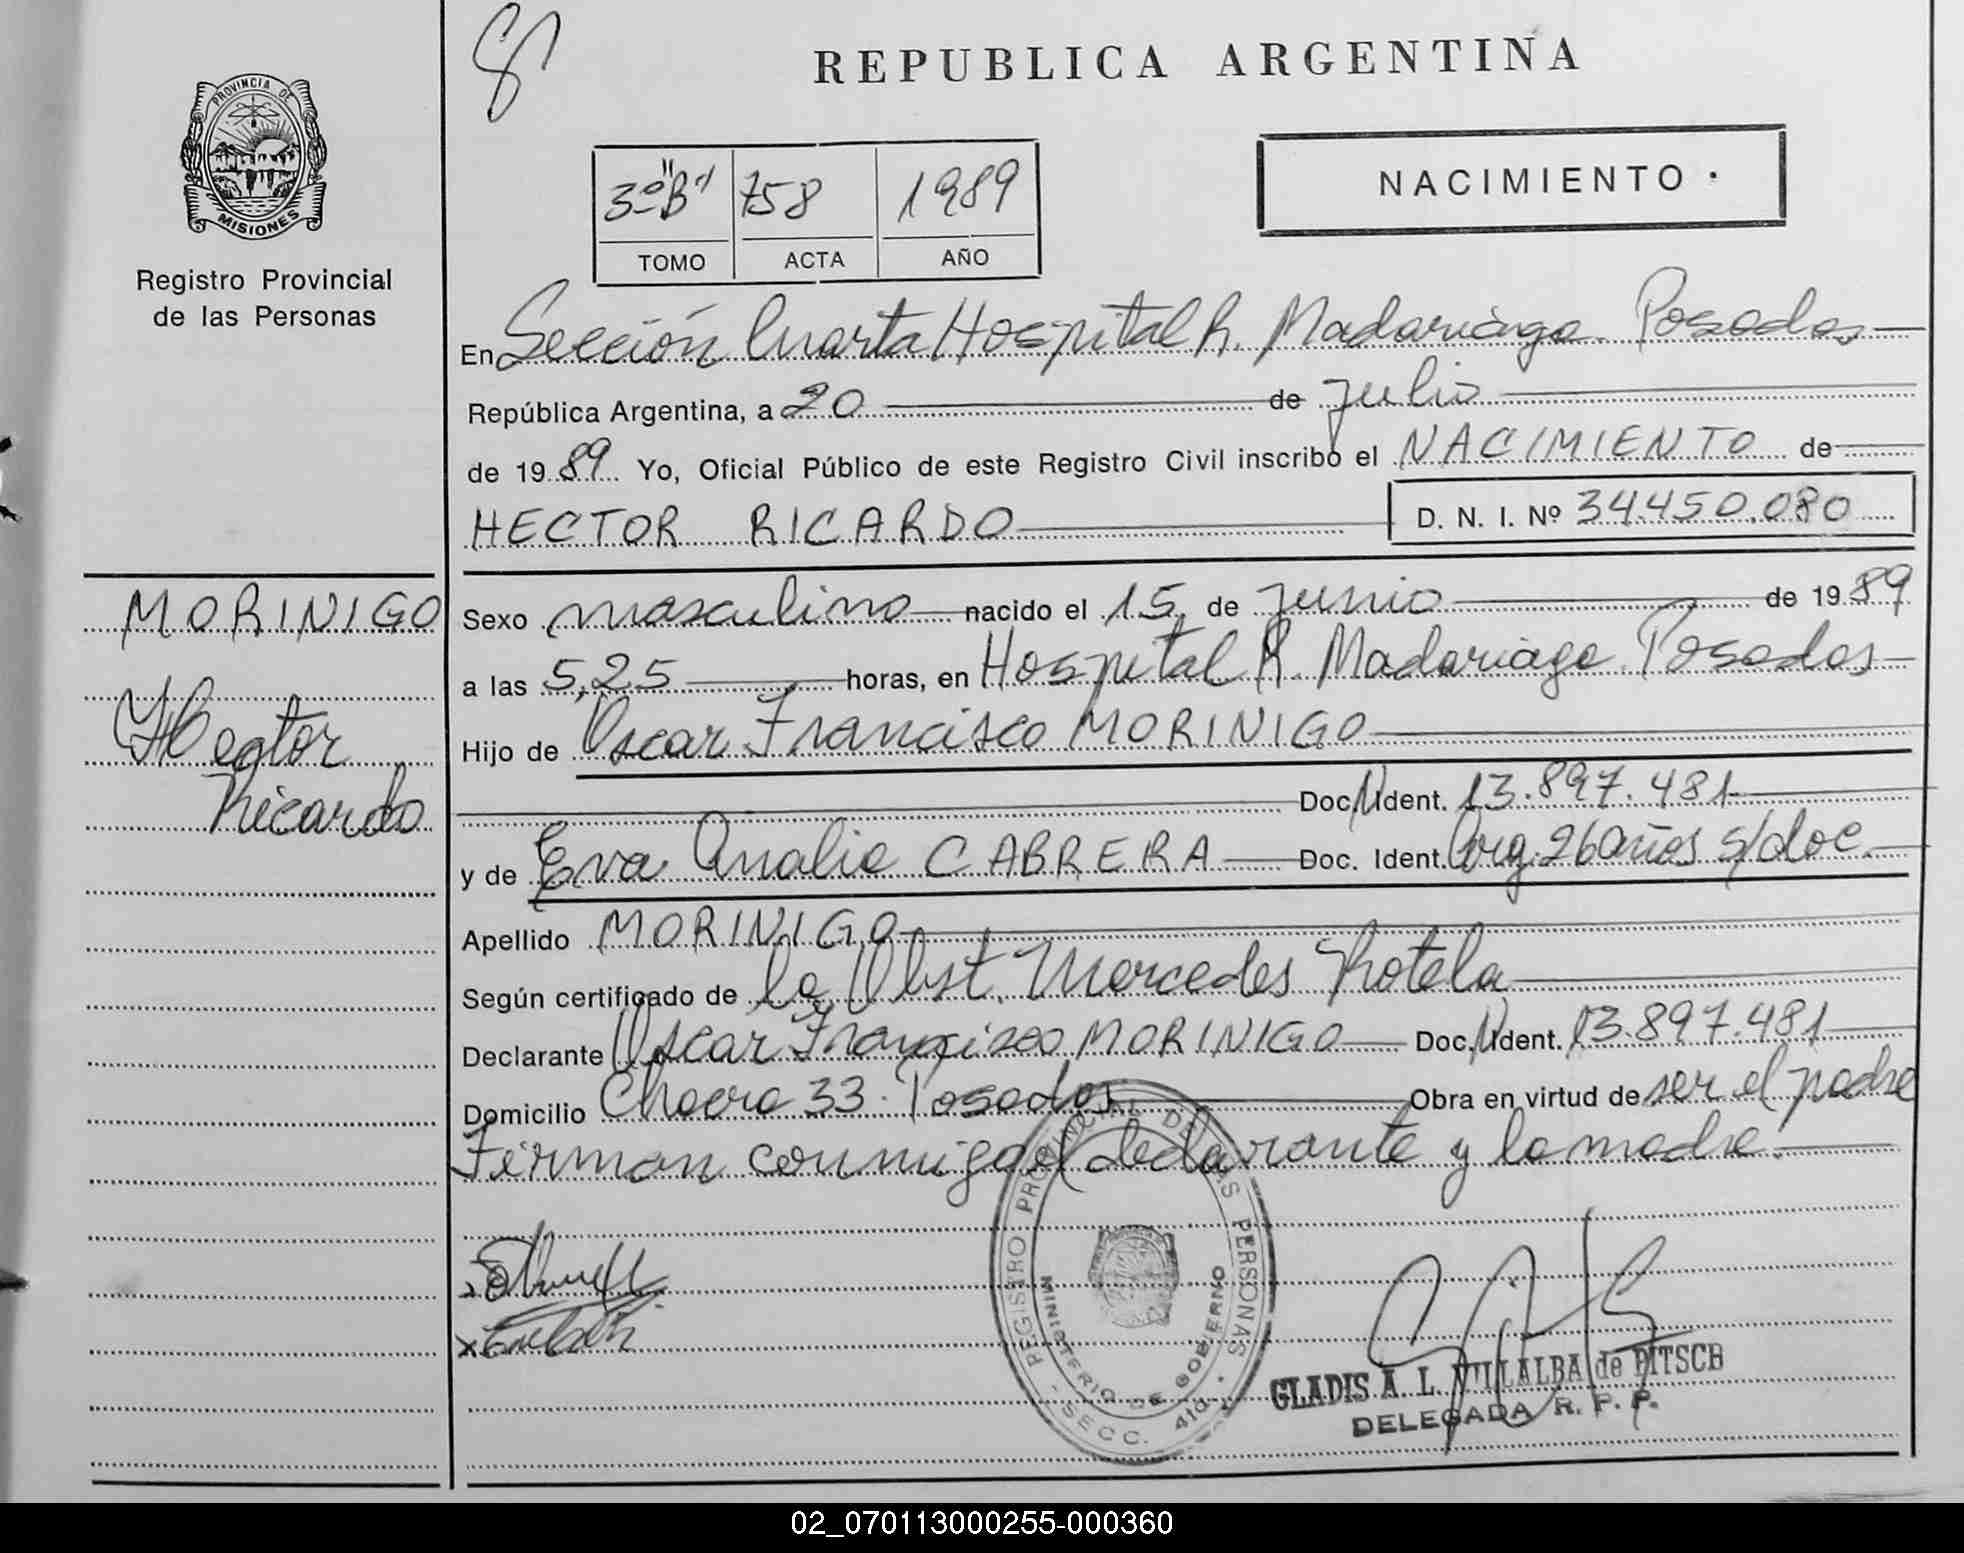 REPUBLICA ARGENTINA
PROVINCIA DE
MISIONES
Registro Provincial
de las Personas
3º "B" 758 1989
TOMO ACTA AÑO
NACIMIENTO
En Sección Cuarta Hospital R. Madariaga. Posadas
República Argentina, a 20 de julio
de 1989 Yo, Oficial Público de este Registro Civil inscribo el NACIMIENTO de
HECTOR RICARDO D. N. I. Nº 34.450.080
MORINIGO
Hector
Ricardo
Sexo masculino nacido el 15 de junio de 1989
a las 5,25 horas, en Hospital R. Madariaga. Posadas
Hijo de Oscar Francisco MORINIGO
Doc. N. Ident. 13.897.481
y de Eva Analia CABRERA Doc. Ident. Arg. 26 años s/doc.
Apellido MORINIGO
Según certificado de la Obst. Mercedes Rotela
Declarante Oscar Francisco MORINIGO Doc. N. Ident. 13.897.481
Domicilio Chacra 33. Posadas Obra en virtud de ser el padre
Firman conmigo el declarante y la madre.
REGISTRO PROVINCIAL DE LAS PERSONAS
MINISTERIO DE GOBIERNO
SECC. 4ta.
GLADIS A. L. VILLALBA de PITSCH
DELEGADA R. P. P.
02_070113000255-000360